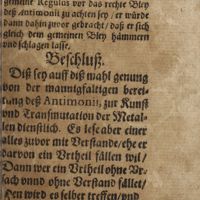 gemeine Regulus vor das rechte Bley
deß Antimonii zu achten sey / er würde
dann dahin zuvor gebracht / daß er sich
gleich dem gemeinen Bley hämmern
und schlagen lasse.
Beschluß.
Diß sey auff diß mahl genung
von der mannigfaltigen berei-
tung deß Antimonii, zur Kunst
und Transmutation der Metal-
len dienstlich. Es lese aber einer
alles zuvor mit Verstande / ehe er
darvon ein Urtheil fällen wil /
Dann wer ein Urtheil ohne Ur-
sach vnnd ohne Verstand fället /
Den wird es selber treffen / und